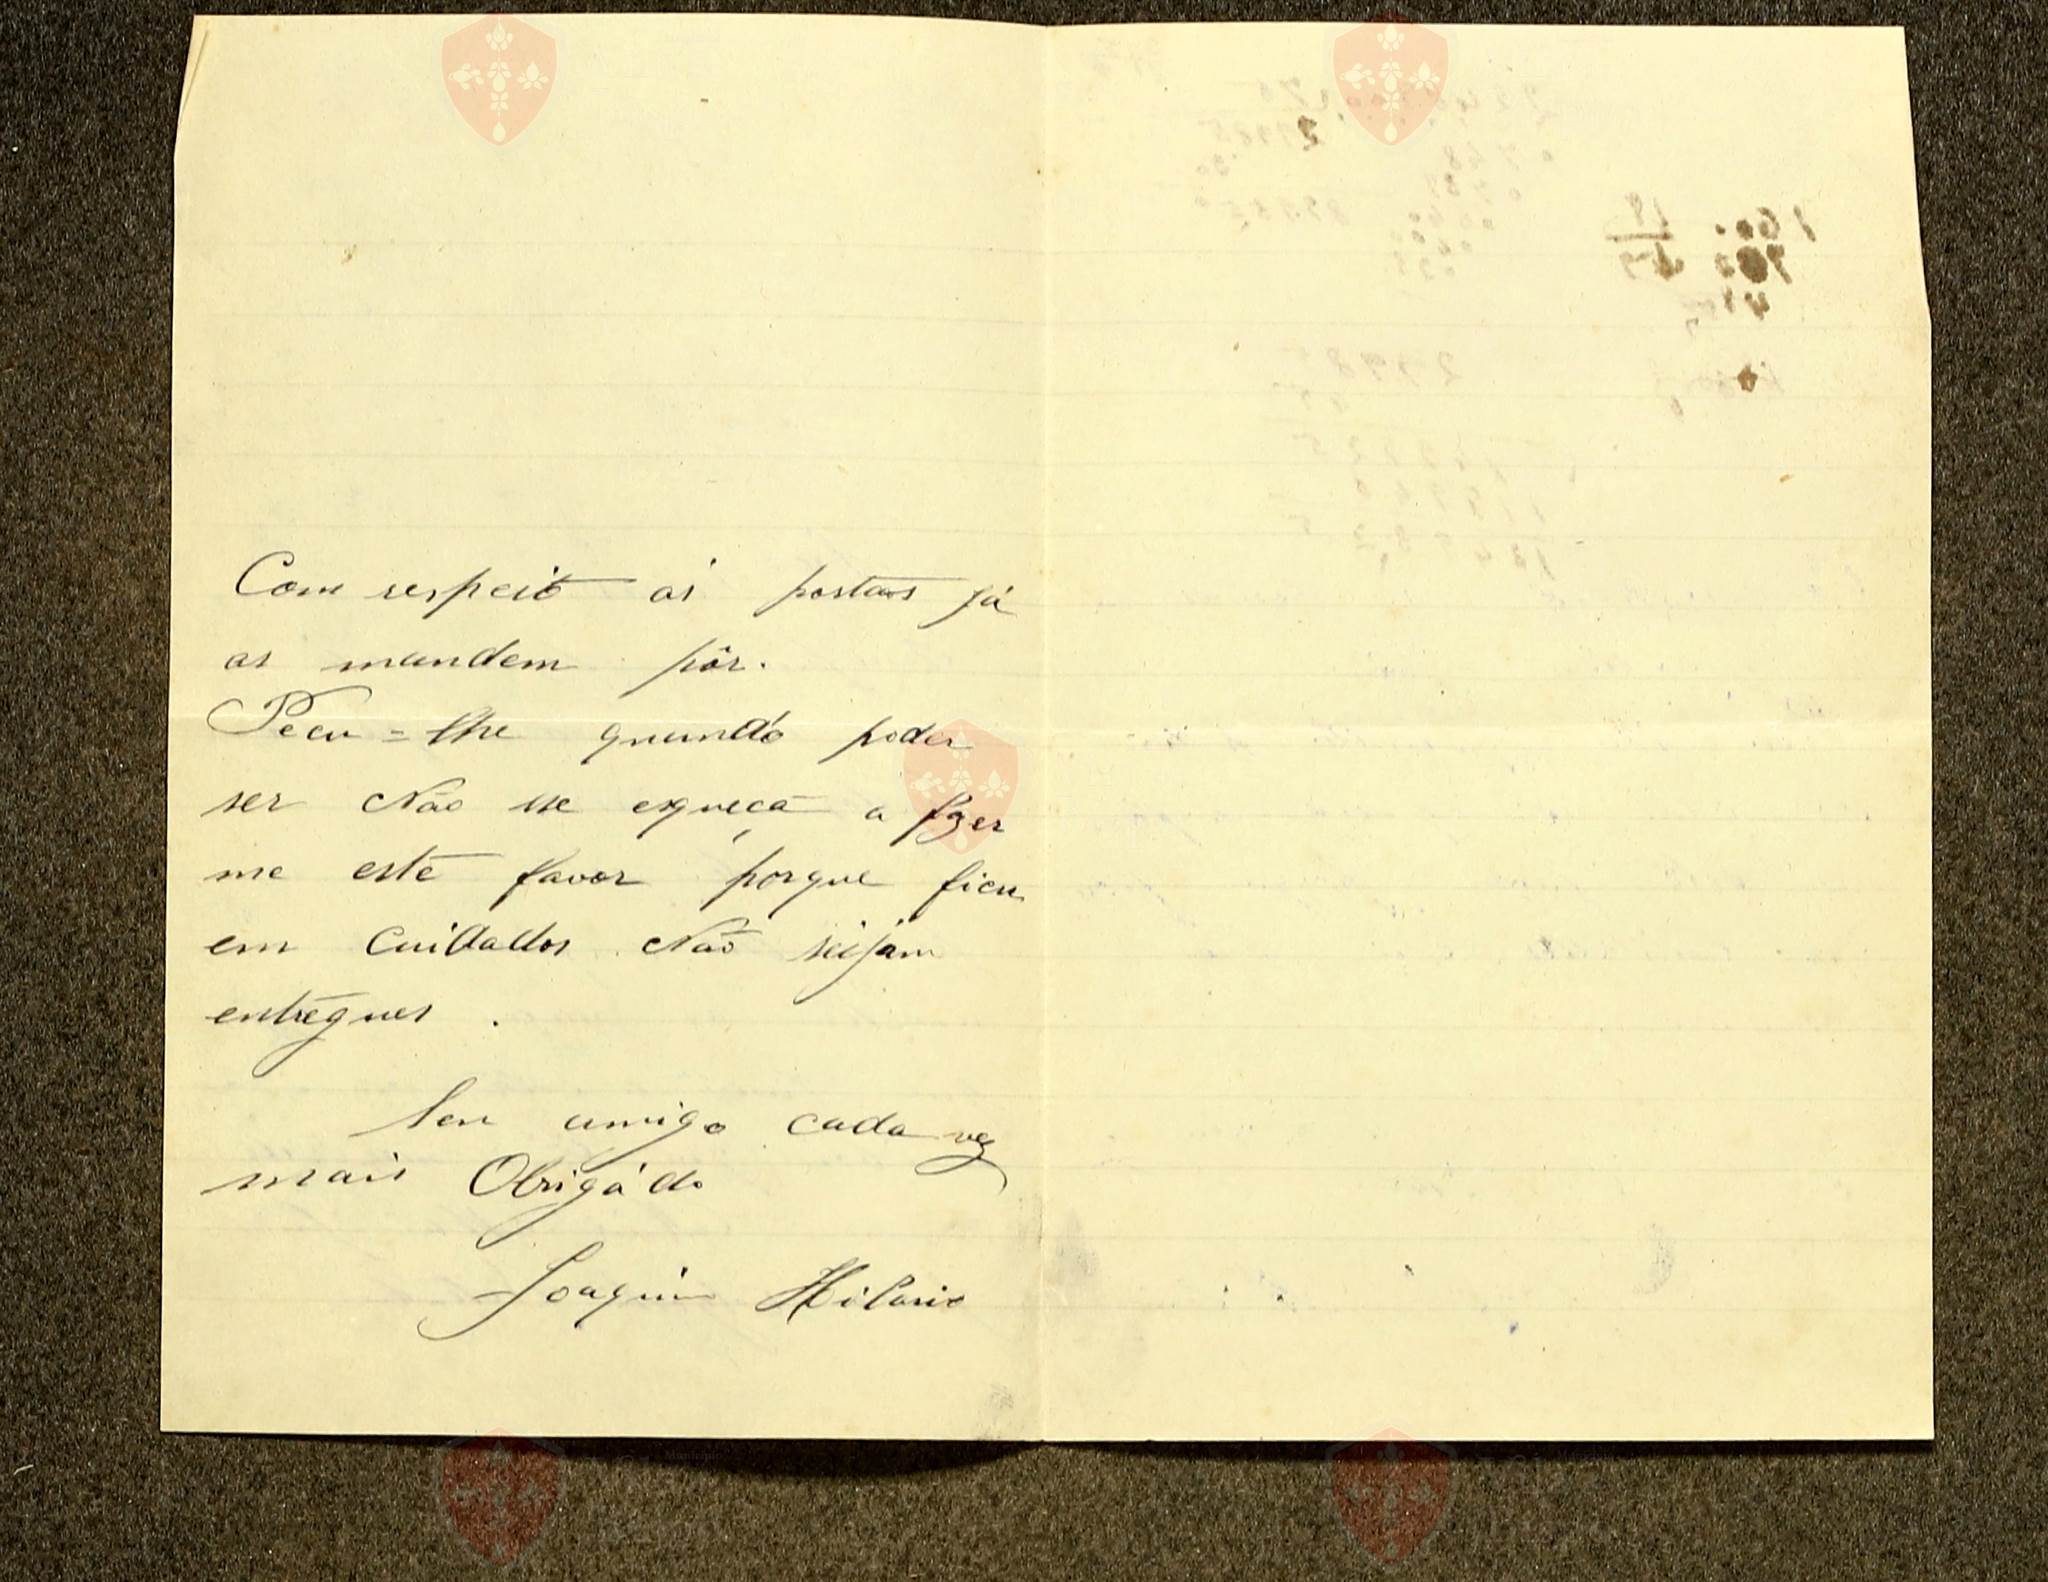 Com respeito ás portas já
as mandem pôr.
Pecu=lhe quando poder
ser Não sse esqueça a fzer
me este favor porque ficu
em cuidados Não seijam
entrégues.
Seu amigo cada vez
mais Obrigádo
Joaquim Hilario